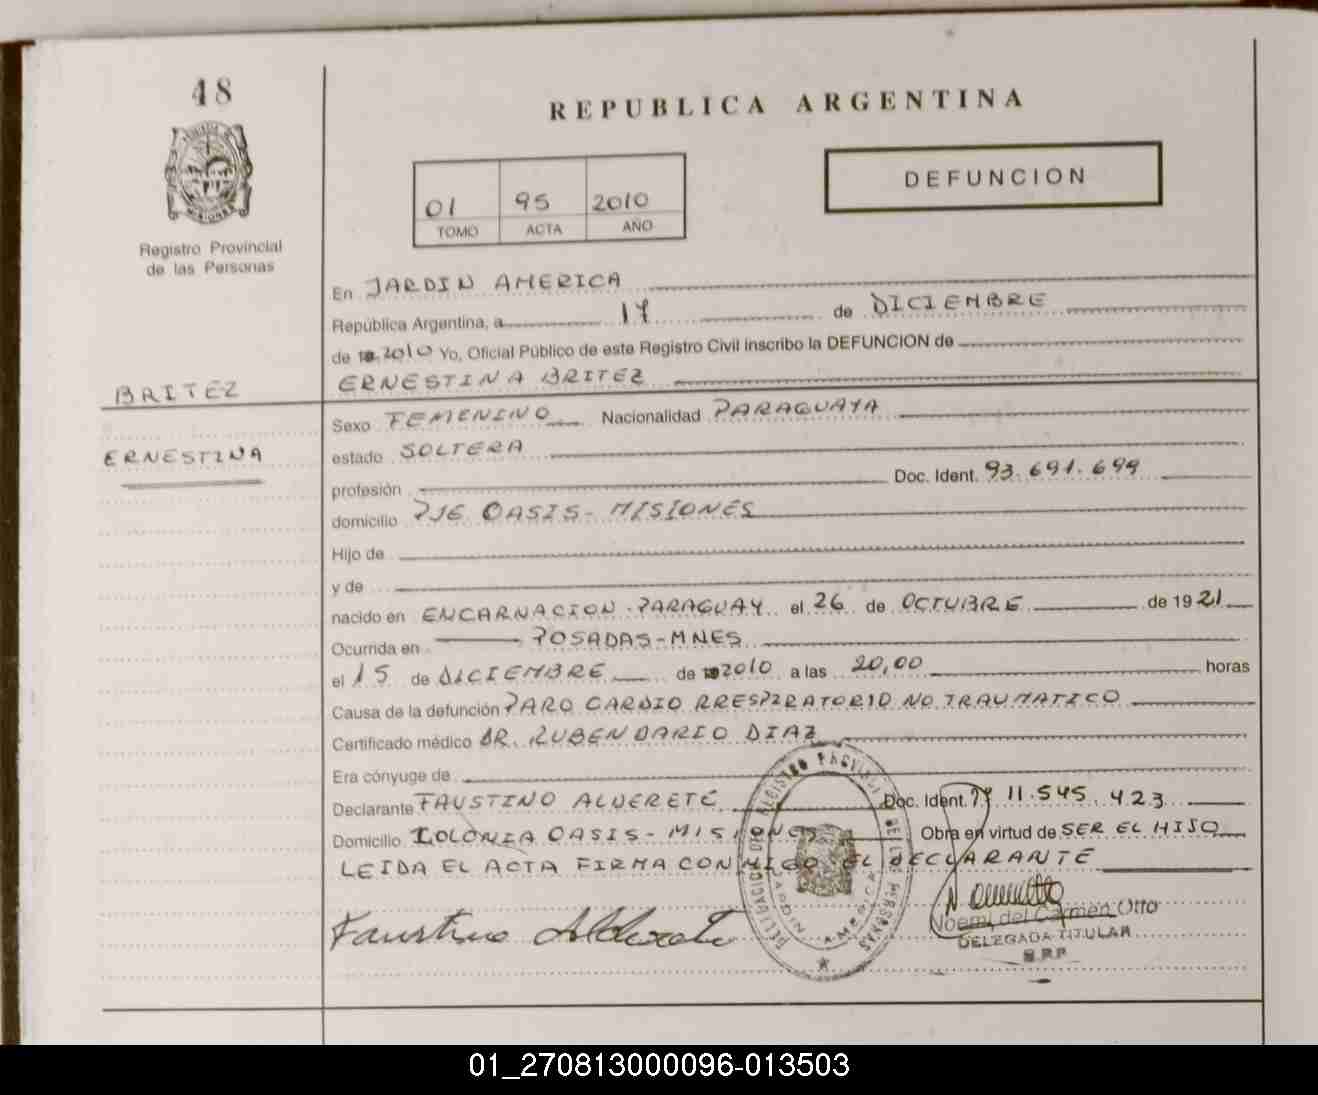 48
REPUBLICA ARGENTINA
DEFUNCION
01 95 2010
TOMO ACTA AÑO
Registro Provincial
de las Personas
En JARDIN AMERICA
República Argentina, a 17 de DICIEMBRE
de 2010 Yo, Oficial Público de este Registro Civil inscribo la DEFUNCION de
ERNESTINA BRITEZ
BRITEZ
ERNESTINA
Sexo FEMENINO Nacionalidad PARAGUAYA
estado SOLTERA
profesión Doc. Ident. 93.691.699
domicilio PJE OASIS - MISIONES
Hijo de
y de
nacido en ENCARNACION - PARAGUAY el 26 de OCTUBRE de 1921
Ocurrida en POSADAS - MNES
el 15 de DICIEMBRE de 2010 a las 20,00 horas
Causa de la defunción PARO CARDIO RRESPIRATORIO NO TRAUMATICO
Certificado médico DR. RUBEN DARIO DIAZ
Era cónyuge de
Declarante FAUSTINO Doc. Ident. 11.545.423
Domicilio COLONIA OASIS - MISIONES Obra en virtud de SER EL HIJO
LEIDA EL ACTA FIRMA CONMIGO EL DECLARANTE
Faustino
Noemi del Carmen Otto
DELEGADA TITULAR
DELEGACION DEL REGISTRO PROVINCIAL DE LAS PERSONAS
JARDIN AMERICA
01_270813000096-013503